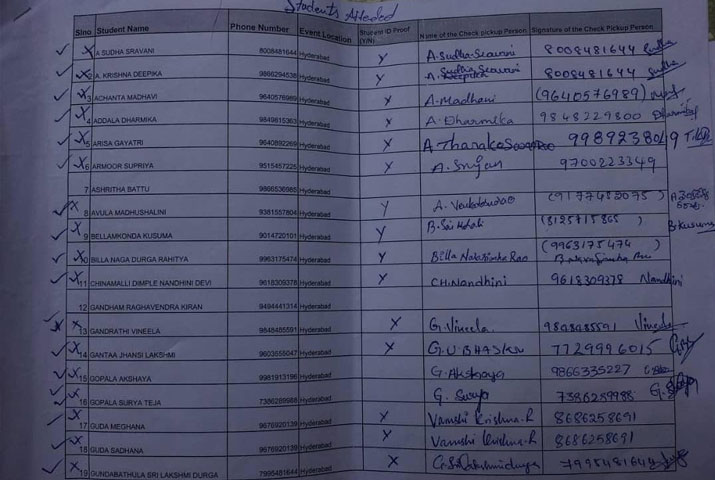 Students Attended
Slno Student Name Phone Number Event Location Student ID Proof (Y/N) Name of the Check pickup Person Signature of the Check Pickup Person
1 A SUDHA SRAVANI 8008481644 Hyderabad Y A. Sudha Sravani 8008481644 Sudha
2 A. KRISHNA DEEPIKA 9866294536 Hyderabad Y A. Sudha Sravani 8008481644 Sudha
3 ACHANTA MADHAVI 9640576989 Hyderabad Y A. Madhavi (9640576989)
4 ADDALA DHARMIKA 9849815363 Hyderabad Y A. Dharmika 9848229300 Dharmika
5 ARISA GAYATRI 9640892269 Hyderabad Y A. 9989238019
6 ARMOOR SUPRIYA 9515457225 Hyderabad Y A. Srijan 9700223349
7 ASHRITHA BATTU 9866536985 Hyderabad
8 AVULA MADHUSHALINI 9381557804 Hyderabad Y A.
9 BELLAMKONDA KUSUMA 9014720101 Hyderabad Y B. B. Kusuma
10 BILLA NAGA DURGA RAHITYA 9963175474 Hyderabad Y Billa Rao (9963175474)
11 CHINAMALLI DIMPLE NANDHINI DEVI 9618309378 Hyderabad Y CH. Nandhini 9618309378 Nandhini
12 GANDHAM RAGHAVENDRA KIRAN 9494441314 Hyderabad
13 GANDRATHI VINEELA 9848485591 Hyderabad Y G. Vineela 9848485591 Vineela
14 GANTAA JHANSI LAKSHMI 9603555047 Hyderabad Y G.U. BHASKAR 7729996015
15 GOPALA AKSHAYA 9981913196 Hyderabad G. Akshaya 9866335227
16 GOPALA SURYA TEJA 7386289988 Hyderabad G. Surya 7386289988 G. Surya
17 GUDA MEGHANA 9676920139 Hyderabad Y Vamshi Krishna. R 8686258691
18 GUDA SADHANA 9676920139 Hyderabad Y Vamshi Krishna. R 8686258691
19 GUNDABATHULA SRI LAKSHMI DURGA 7995481644 Hyderabad Y G. Sri Lakshmi durga 7995481644